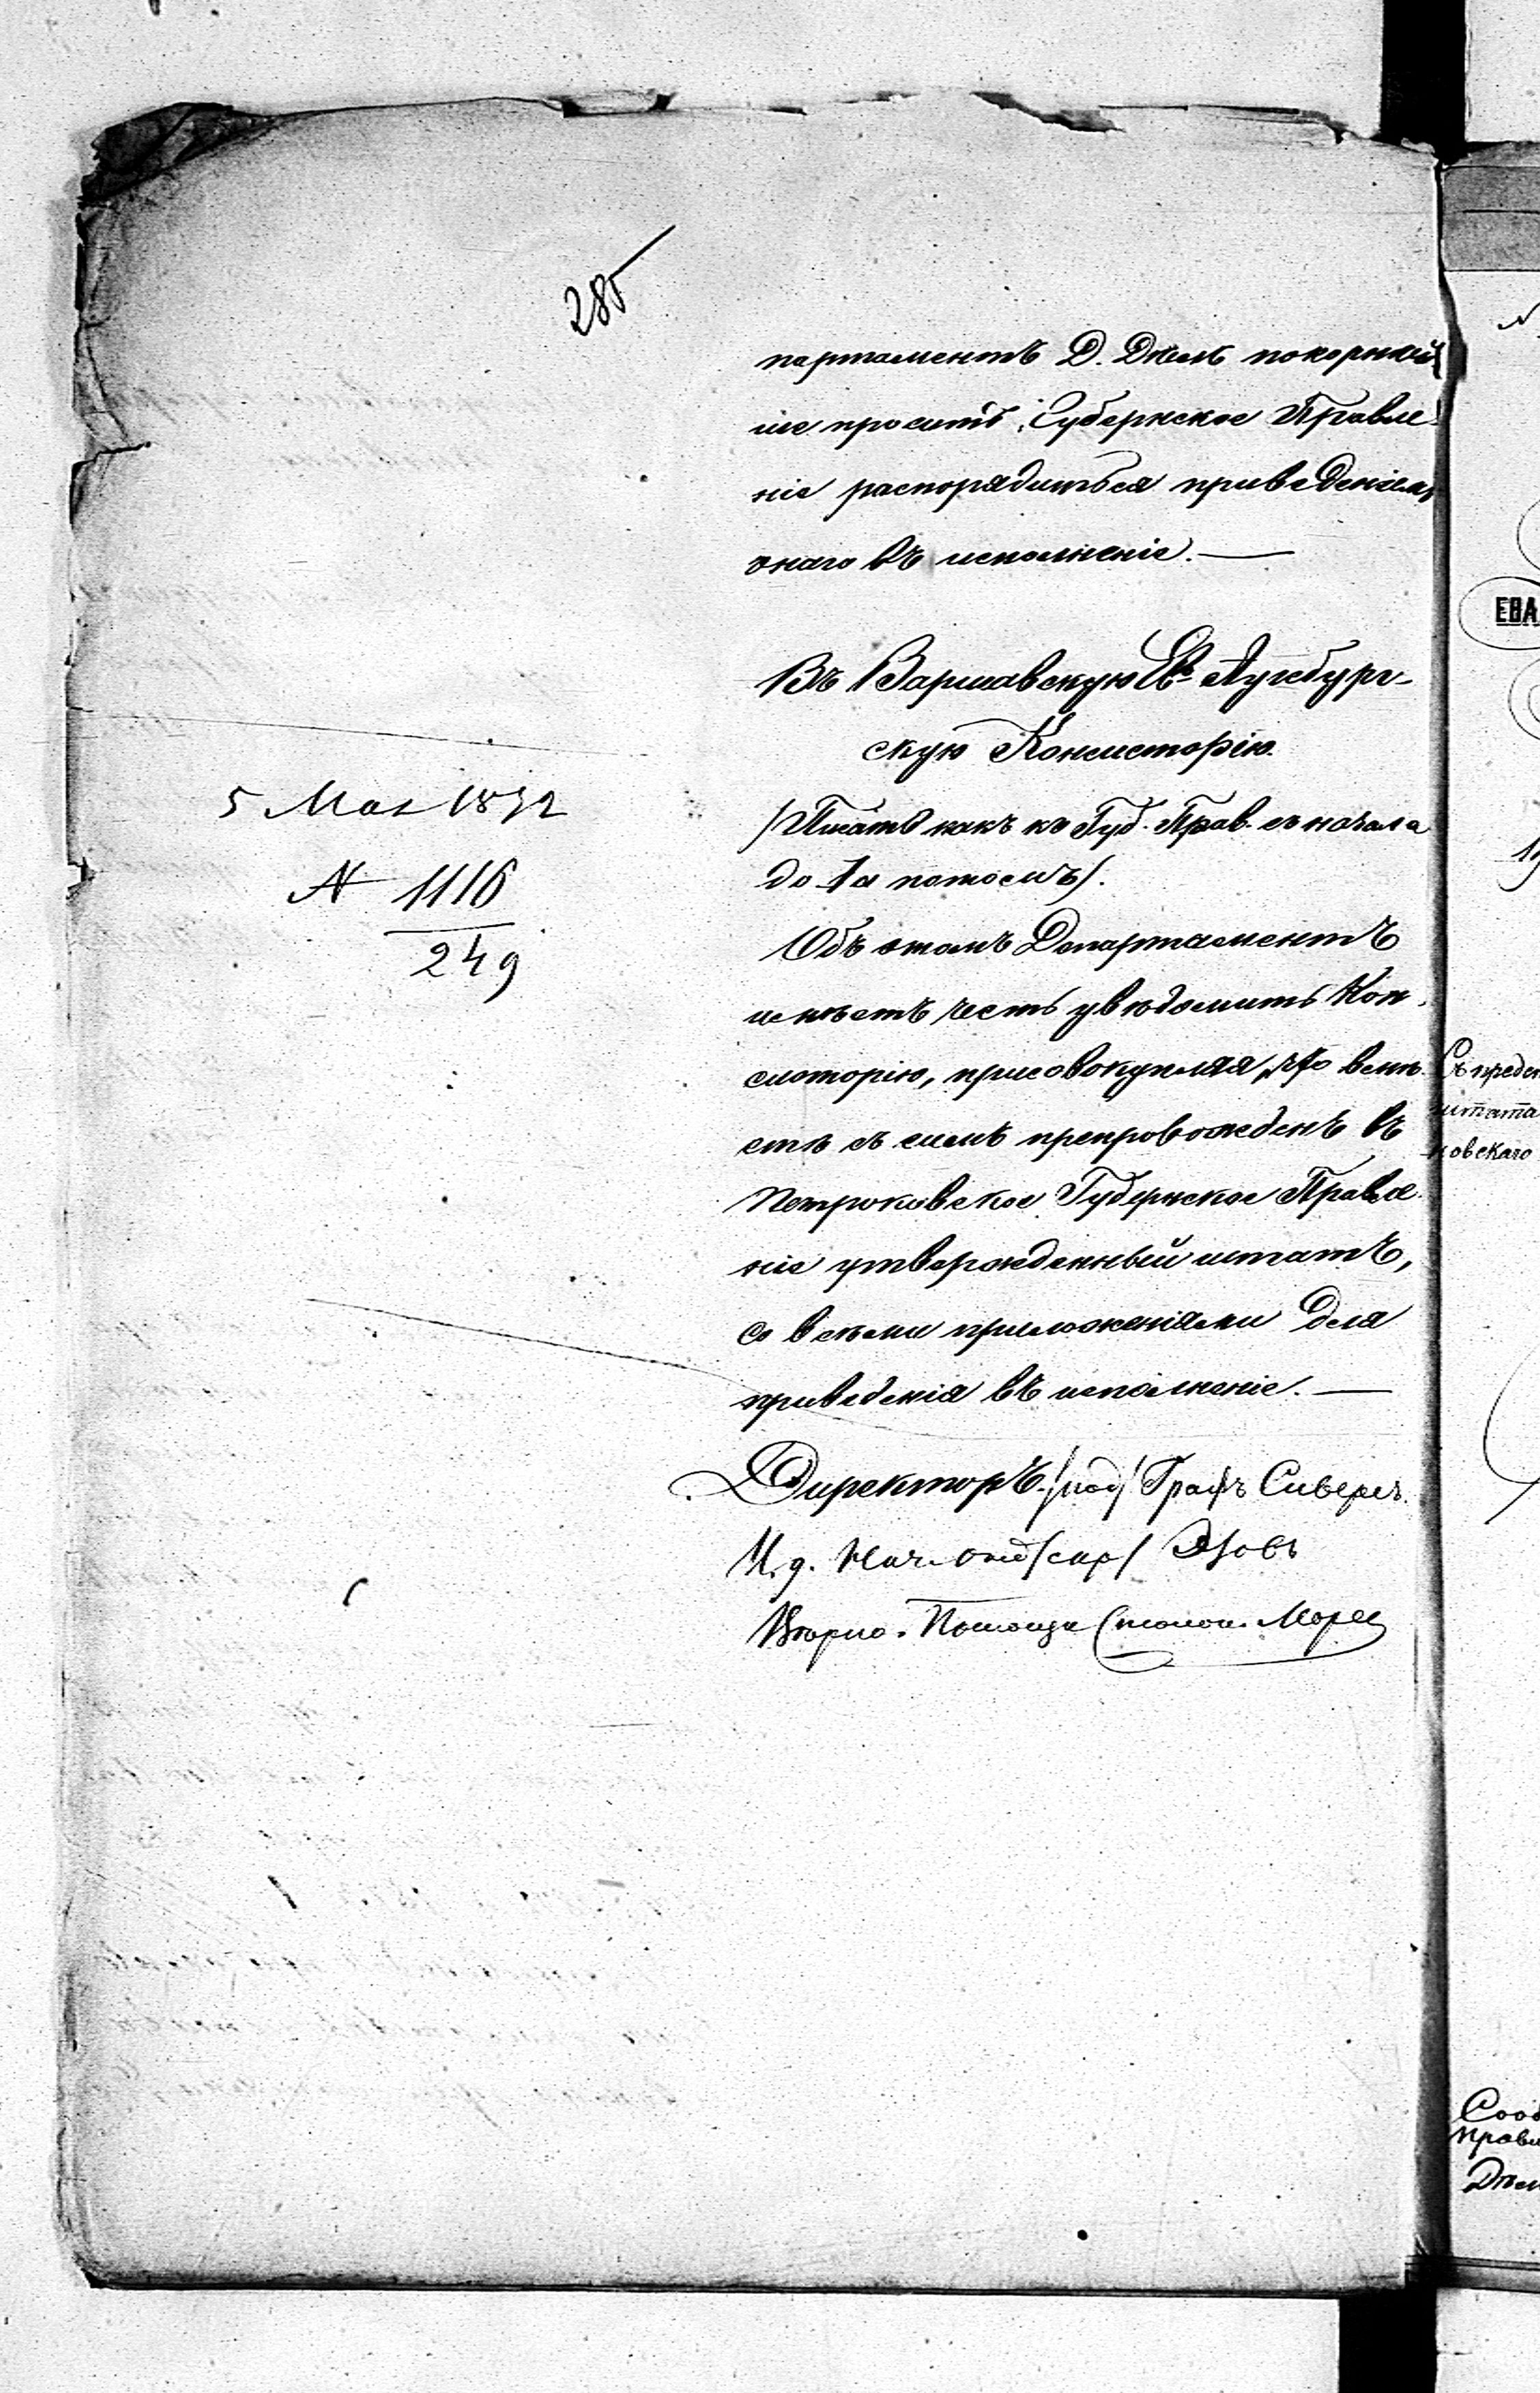 285
партаментъ Д. Дѣлъ покорнѣй
ше проситъ Губернское Правле-
ніе распорядиться приведеніемъ
онаго въ исполненіе. —
Въ Варшавскую Ев. Аугсбург-
скую Консисторію.
5 Мая 1872
№ 1116
249
/Писать какъ къ Губ. Прав. съ начала
до / а потомъ/.
Объ этомъ Департаментъ
имѣетъ честь увѣдомить Кон
систорію, присовокупляя, что вмѣ-
стѣ съ симъ препровожденъ въ
Петроковское Губернское Правле
ніе утвержденный штатъ,
со всѣми приложеніями для
приведенія въ исполненіе. —
Директоръ /под/ Графъ Сиверсъ.
И. д. Нач. Отд /скр/
Вѣрно. Помощн Столон.
ЕВА
Съ предс
штата
ковскаго
Сооб
Правл
Дѣл